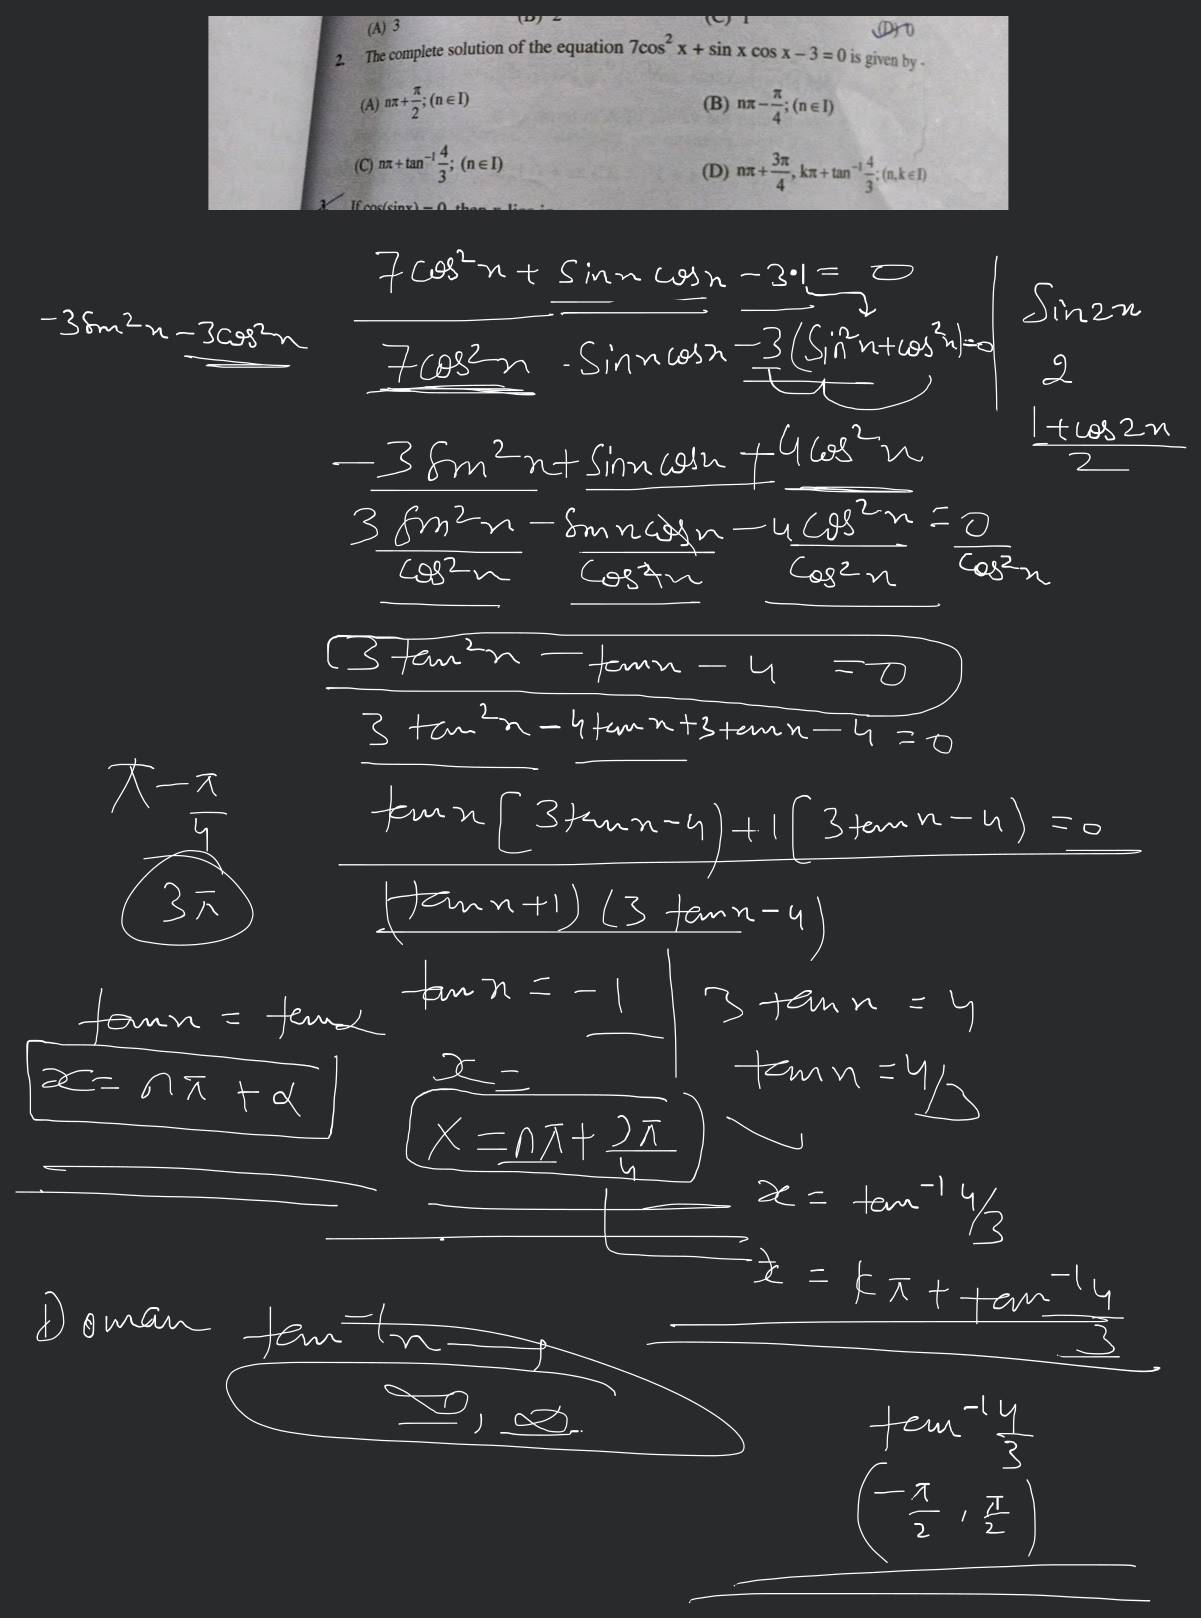 (A) 3 (B) 2 (C) 1 (D) 0
2. The complete solution of the equation 7cos² x + sin x cos x – 3 = 0 is given by -
(A) nπ + π/2 ; (n ∈ I) (B) nπ – π/4 ; (n ∈ I)
(C) nπ + tan⁻¹ 4/3 ; (n ∈ I) (D) nπ + 3π/4 , kπ + tan⁻¹ 4/3 ; (n, k ∈ I)
If cos(sinx) = 0, then x lies in
7cos²x + sinx cosx – 3·1 = 0
-3sin²x – 3cos²x
7cos²x - sinx cosx – 3(sin²x + cos²x) = 0
sin2x
2
1 + cos2x / 2
– 3 sin²x + sinx cosx + 4cos²x
3 sin²x / cos²x – sinx cosx / cos²x – 4cos²x / cos²x = 0 / cos²x
3 tan²x – tanx – 4 = 0
3 tan²x – 4tanx + 3tanx – 4 = 0
π – π/4
3π
tanx [3tanx – 4) + 1 [3tanx – 4) = 0
(tanx + 1) (3 tanx – 4)
tanx = -1
3 tanx = 4
tanx = tanα
x = nπ + α
x =
tanx = 4/3
x = nπ + 3π/4
x = tan⁻¹ 4/3
x = kπ + tan⁻¹ 4/3
Doman tan⁻¹x
∞, ∞
tan⁻¹ 4/3
(-π/2, π/2)